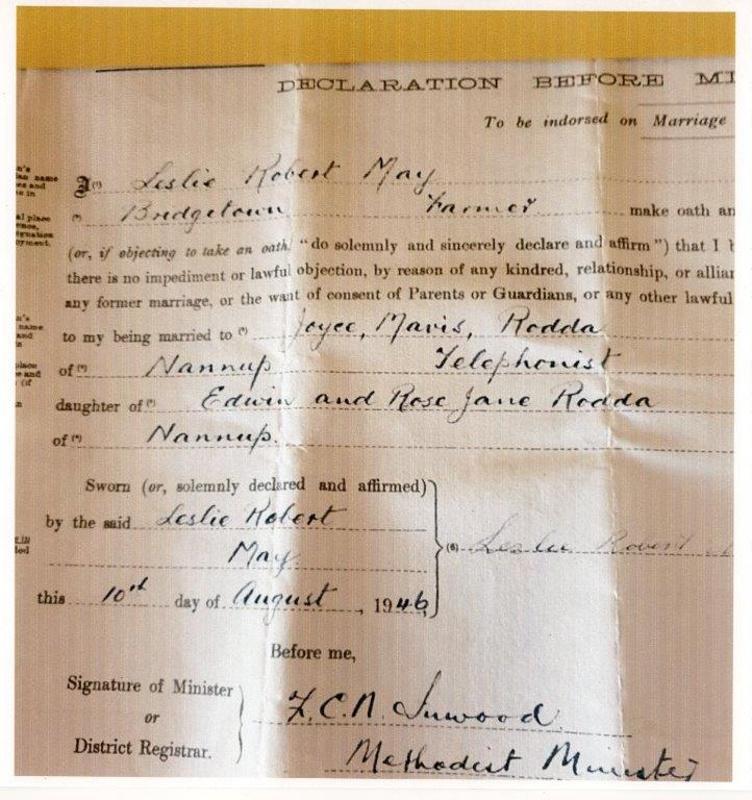 DECLARATION BEFORE MI
To be indorsed on Marriage
I (¹) Leslie Robert May
(²) Bridgetown Farmer make oath an
(or, if objecting to take an oath "do solemnly and sincerely declare and affirm") that I b
there is no impediment or lawful objection, by reason of any kindred, relationship, or allian
any former marriage, or the want of consent of Parents or Guardians, or any other lawful
to my being married to (³) Joyce, Mavis, Rodda
of (⁴) Nannup Telephonist
daughter of (⁵) Edwin and Rose Jane Rodda
of (⁴) Nannup.
Sworn (or, solemnly declared and affirmed)
by the said Leslie Robert
May
(6) Leslie Robert
this 10th day of August, 1946
Before me,
Signature of Minister
or
District Registrar.
F.C.N. Inwood
Methodist Minister